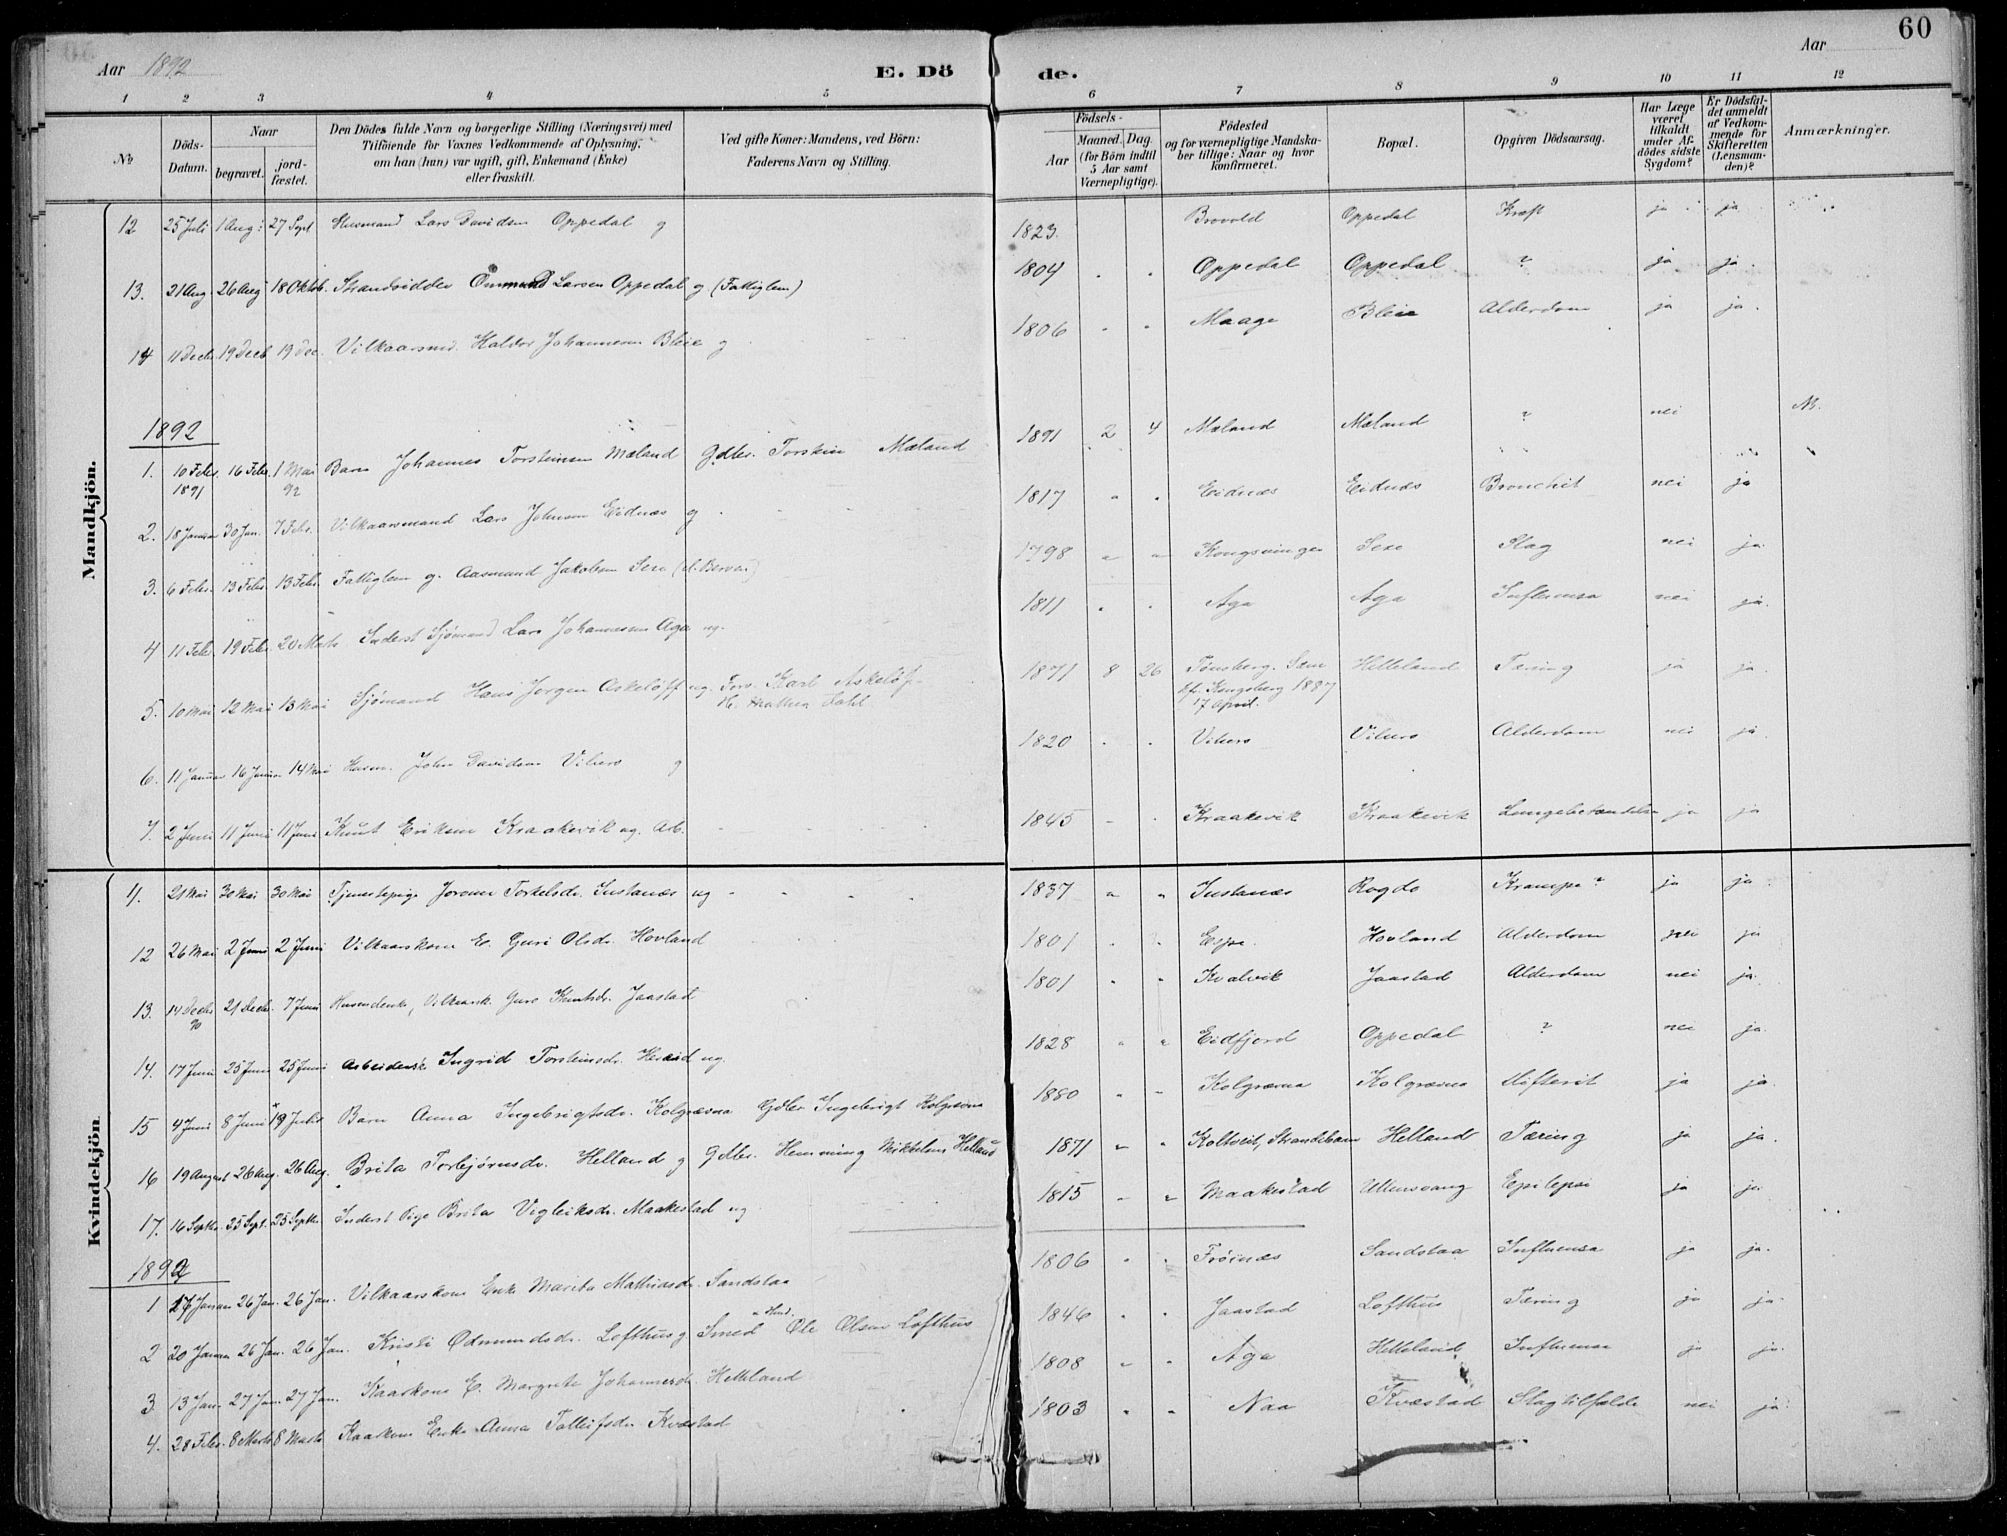 60
Aar 1892 E. Dö de. Aar
1 2 3 4 5 6 7 8 9 10 11 12
No
Döds-
Datum.
Naar
begravet.
jord-
fæstet.
Den Dödes fulde Navn og borgerlige Stilling (Næringsvei) med
Tilföiende for Voxnes Vedkommende af Oplysning,
om han (hun) var ugift, gift, Enkemand (Enke)
eller fraskilt.
Ved gifte Koner: Mandens, ved Börn:
Faderens Navn og Stilling.
Födsels-
Aar
Maaned. Dag.
(for Börn indtil
5 Aar samt
Værnepligtige).
Födested
og for værnepligtige Mandska-
ber tillige: Naar og hvor
konfirmeret.
Bopæl.
Opgiven Dödsaarsag.
Har Læge
været
tilkaldt
under Af-
dödes sidste
Sygdom?
Er Dödsfal-
det anmeldt
af Vedkom-
mende for
Skifteretten
(Lensman-
den)?
Anmærkninger.
Mandkjön.
12 25 Juli 1 Aug: 27 Sept Husmand Lars Davidsen Oppedal g 1823. Brovold Oppedal Kræft ja ja
13. 21 Aug. 26 Aug 18 Oktob. Strandsidder Ommund Larsen Oppedal g (Fattiglem) 1804 Oppedal Oppedal ? ja ja.
14 11 Decb. 19 Decb 19 Dec. Vilkaarsmd. Haldor Johannesen Bleie g 1806 Maage Bleie Alderdom ja ja.
1892
1. 10 Febr. 1891 16 Febr. 1 Mai 92 Barn Johannes Torsteinsen Mæland Gdbr. Torstein Mæland 1891 2 4 Mæland Mæland ? nei
2. 18 Januar 30 Jan. 7 Febr. Vilkaarsmand Lars Johnsen Eidnæs g 1817 Eidnæs Eidnæs Bronchit nei ja
3. 6 Febr. 13 Febr. 13 Febr. Fattiglem g. Aasmund Jakobsen Sexe 1798 Sexe Slag nei ja.
4 11 Febr. 19 Febr. 20 Marts Inderst Sjömand Lars Johannesen Aga ug. 1811 Aga Aga Influensa nei ja.
5. 10 Mai 12 Mai 13 Mai Sjömand Hans Jorgen Askelöff ug. Fors. Karl Askelöf 1871 8 26 Tönsberg. Helleland Tæring ja ja.
Kongsberg 1887
17 April.
6. 11 Januar 16 Januar 14 Mai Husm. John Davidsen Vikers g 1820 Vikers Vikers Alderdom nei ja.
7. 2 Juni 11 Juni 11 Juni Knut Eriksen Kraakevik ug. Arb. 1845 Kraakevik Kraakevik Lungebetændelse ja ja
Kvindekjön
11. 21 Mai 30 Mai 30 Mai Tjenestepige Joronn Torkelsdr. Instanæs ug 1837 Instanæs Rogde Krampe? ja ja.
12 26 Mai 2 Juni 2 Juni Vilkaarskone E. Guri Olsdr. Hovland 1801 Espe. Hovland Alderdom nei ja
13. 14 Decbr 90 21 Decbr. 7 Juni Husmdenke, Vilkaarsk. Guro Knutsdr. Jaastad 1801 Kvalvik Jaastad Alderdom nei ja.
14. 17 Juni 25 Juni 25 Juni Arbeidersk Ingrid Torsteinsdr. Heraid ug. 1828 Eidfjord Oppedal ? nei ja.
15 4 Juni 8 Juni 19 Juli Barn Anna Ingebrigtsdr. Kolgrævna Gdbr Ingebrigt Kolgrævna 1880 Kolgrævna Kolgrævna Difterit ja ja.
16 19 August 26 Aug. 26 Aug. Brita Torbjörnsdr. Helland g Gdbr. Hemming Mikkelsen Helland 1871 Koltveit, Strandebarm Helland Tæring ja ja.
17. 16 Septbr. 25 Sept. 25 Septbr Inderst Pige Brita Vigleiksdr. Maakestad ug 1815 Maakestad Ullensvang Epilepsi ja ja.
1892
1 17 Januar 26 Jan. 26 Jan. Vilkaarskone Enke Marita Mathiasdr. Sandstaa 1806 Fröinæs Sandstaa Influensa ja ja.
2 20 Januar 26 Jan. 26 Jan. Kristi Ödmundsdr. Lofthus g Smed Ole Olsen Lofthus 1846 Jaastad Lofthus Tæring ja ja.
3 13 Jan. 27 Jan. 27 Jan. Kaarkone E. Margreta Johannesdr. Helleland 1808 Aga Helleland Influensa ja ja.
4. 28 Febr. 8 Marts 8 Marts Kaarkone Enke Anna Tolleifsdr Kvæstad 1803 Naa Kvæstad Slagtilfælde nei ja